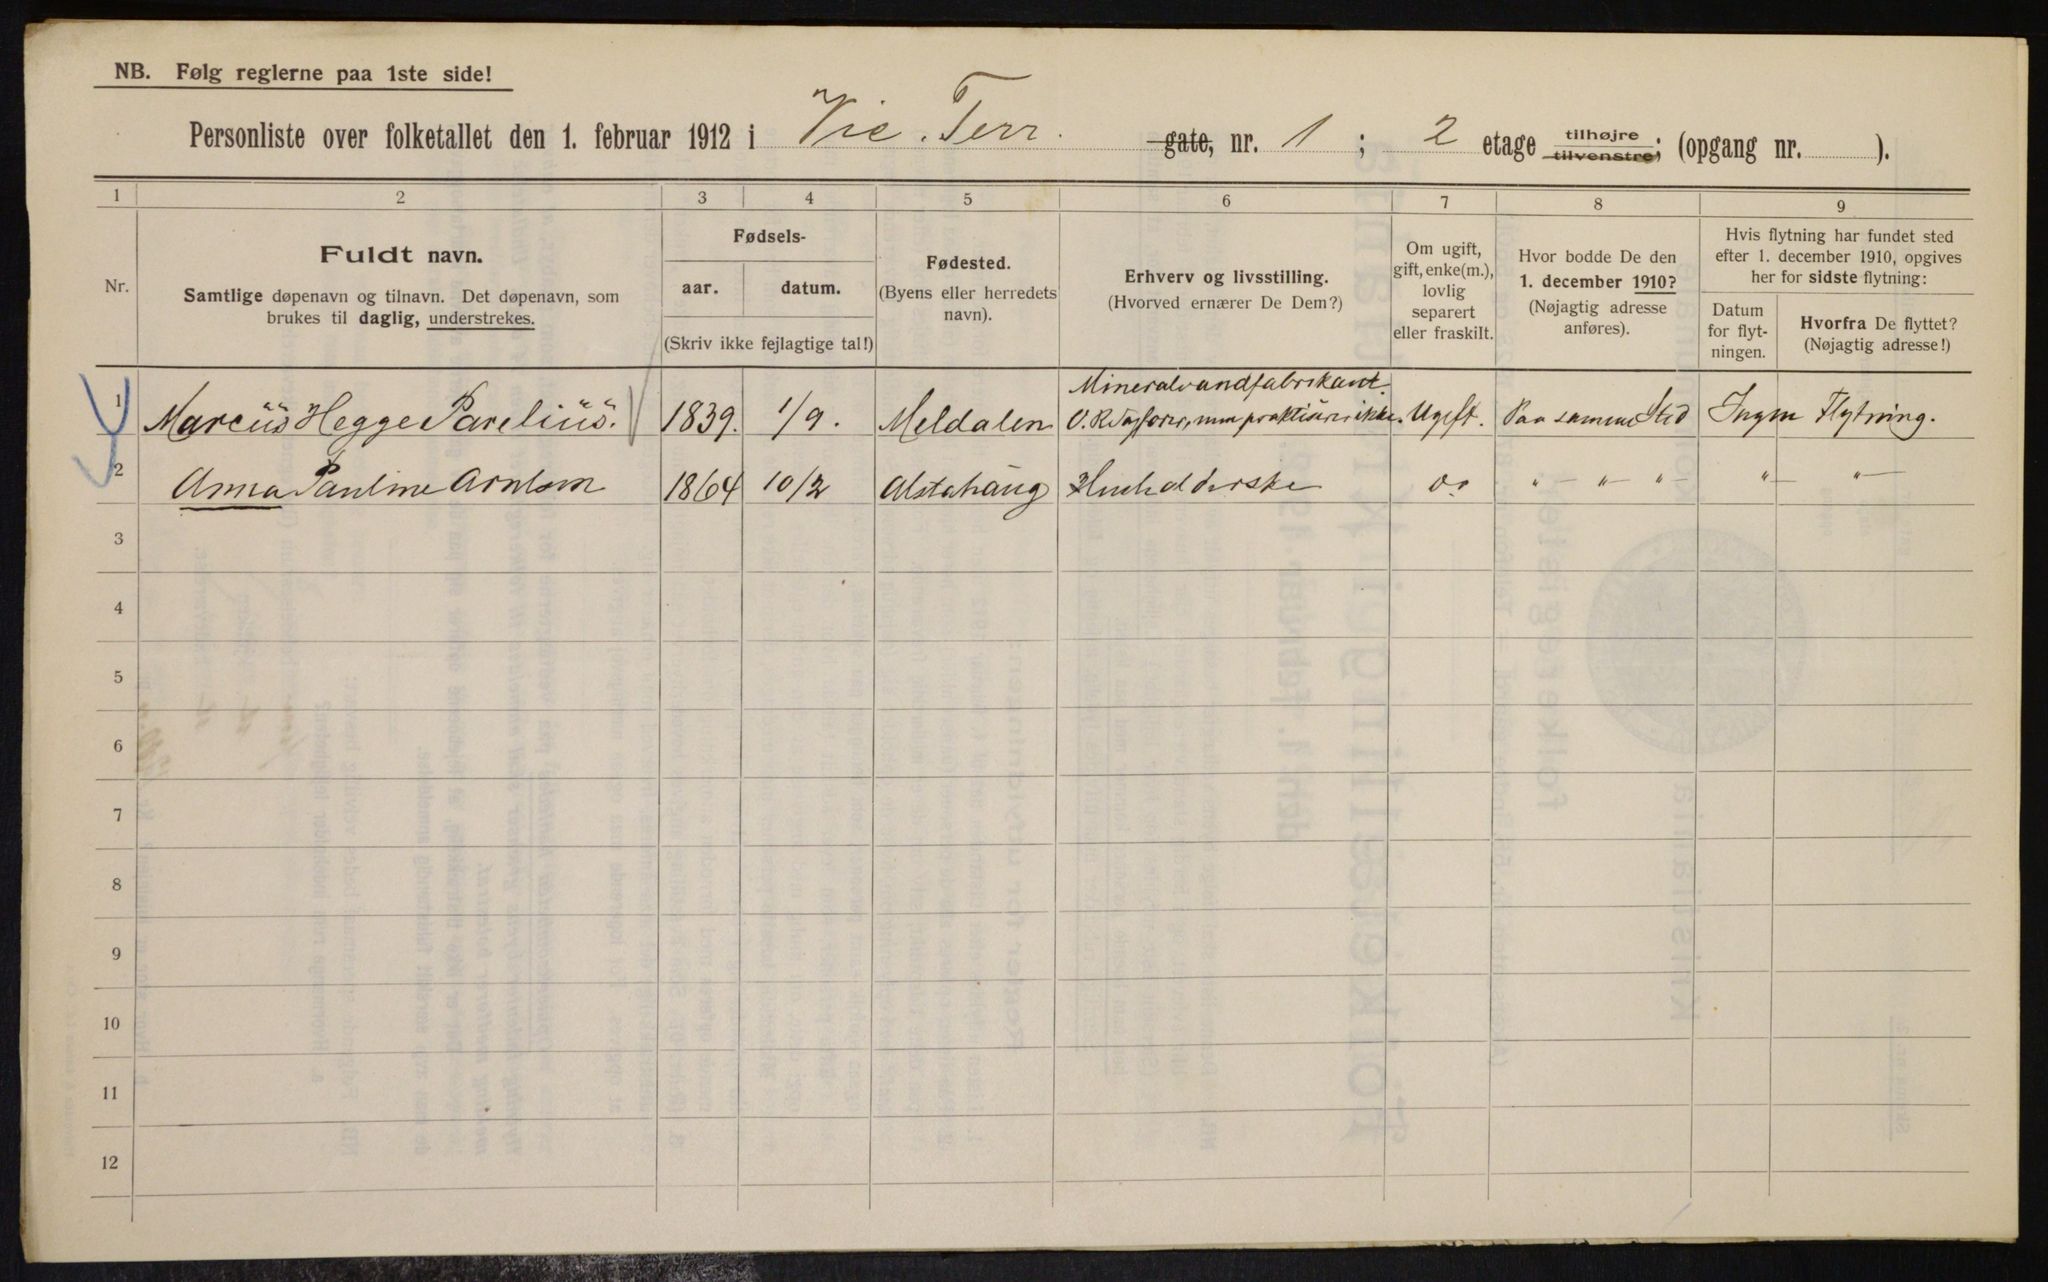 NB. Følg reglerne paa 1ste side!
Personliste over folketallet den 1. februar 1912 i Vic. Terr. gate, nr. 1; 2 etage tilhøjre tilvenstre; (opgang nr. ).
1 2 3 4 5 6 7 8 9
Nr.
Fuldt navn.
Samtlige døpenavn og tilnavn. Det døpenavn, som
brukes til daglig, understrekes.
Fødsels-
aar. datum.
(Skriv ikke fejlagtige tal!)
Fødested.
(Byens eller herredets
navn).
Erhverv og livsstilling.
(Hvorved ernærer De Dem?)
Om ugift,
gift, enke(m.),
lovlig
separert
eller fraskilt.
Hvor bodde De den
1. december 1910?
(Nøjagtig adresse
anføres).
Hvis flytning har fundet sted
efter 1. december 1910, opgives
her for sidste flytning:
Datum
for flyt-
ningen.
Hvorfra De flyttet?
(Nøjagtig adresse!)
Mineralvandfabrikant.
1 Marcus Hegge Parelius. 1839. 1/9. Meldalen praktiserer ikke. Ugift. Paa samme Sted Ingen Flytning.
2 Anna Pauline 1864 10/2 Alstahaug Husholderske do " " " " "
3
4
5
6
7
8
9
10
11
12